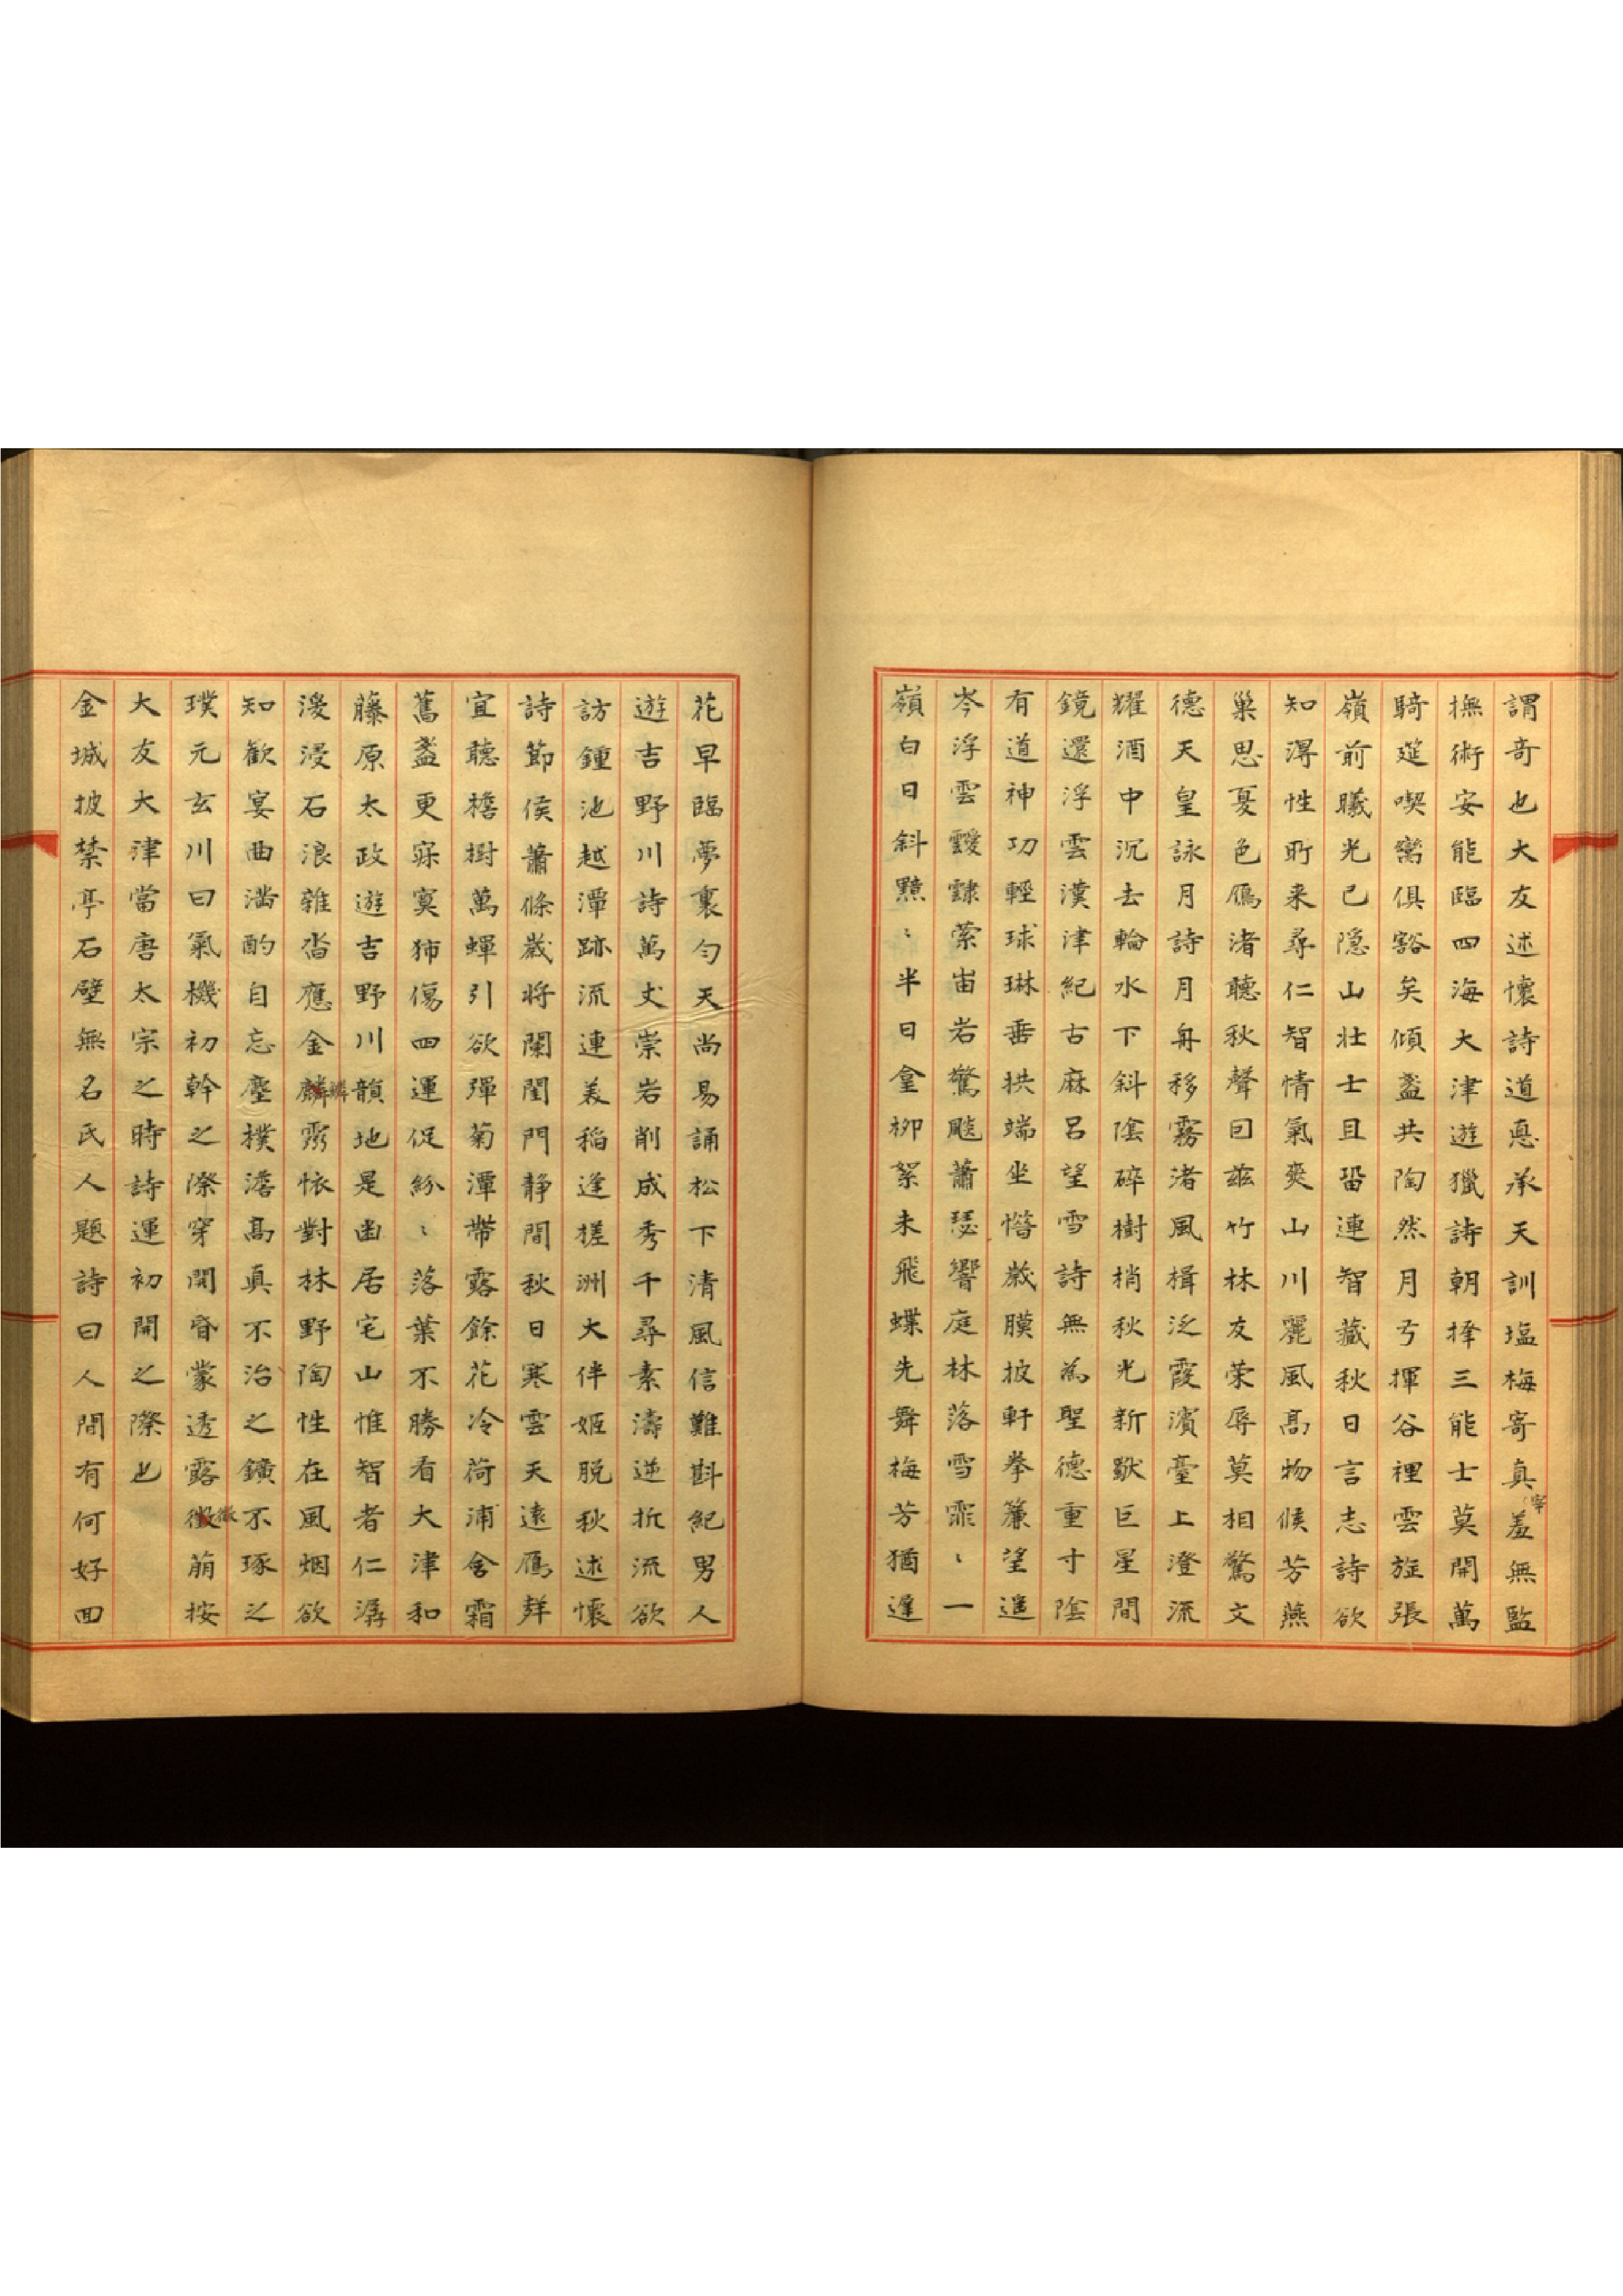 謂奇也大友述懷詩道悳承天訓塩梅寄真宰羞無監
撫術安能臨四海大津遊獵詩朝擇三能士莫開萬
騎筵喫臠俱豁矣傾盞共陶然月弓揮谷裡雲旌張
嶺前曦光已隐山壮士且留連智藏秋日言志詩欲
知淂性所来尋仁智情氣爽山川麗風髙物候芳燕
巢思夏色鴈渚聽秋聲因茲竹林友荣辱莫相驚文
德天皇詠月詩月舟移霧渚風楫泛霞濱臺上澄流
耀酒中沉去輪水下斜陰碎樹梢秋光新獸巨星間
鏡還浮雲漢津紀古麻呂望雪詩無為聖德重寸陰
有道神功輕球琳垂拱端坐惜歲膜披軒拳簾望遥
岑浮雲靉靆縈宙岩驚飈蕭瑟響庭林落雪霏〻一
嶺白日斜黯〻半日含柳絮未飛蝶先舞梅芳猶遲
花早臨夢裏勻天尚易誦松下清風信難斟紀男人
遊吉野川詩萬丈崇岩削成秀千尋素濤逆折流欲
訪鍾池越潭跡流連美稲逢槎洲大伴姬脱秋述懷
詩節侯蕭條歲将闌閨門静間秋日寒雲天遠鴈群
宜聽檐樹萬蟬引欲彈菊潭帶露餘花冷荷浦含霜
舊盞更寐寞㳈傷四運促紛〻落葉不勝看大津和
藤原太政遊吉野川韻地是幽居宅山惟智者仁潺
湲浸石浪雜沓應金麟霛怀對林野陶性在風烟欲
知歡宴曲滿酌自忘塵樸澹髙真不治之鑛不琢之
璞元玄川曰氣機初幹之際穿開昏蒙透露徵萠按
大友大津當唐太宗之時詩運初開之際也
金城披禁亭石壁無名氏人題詩曰人間有何好四